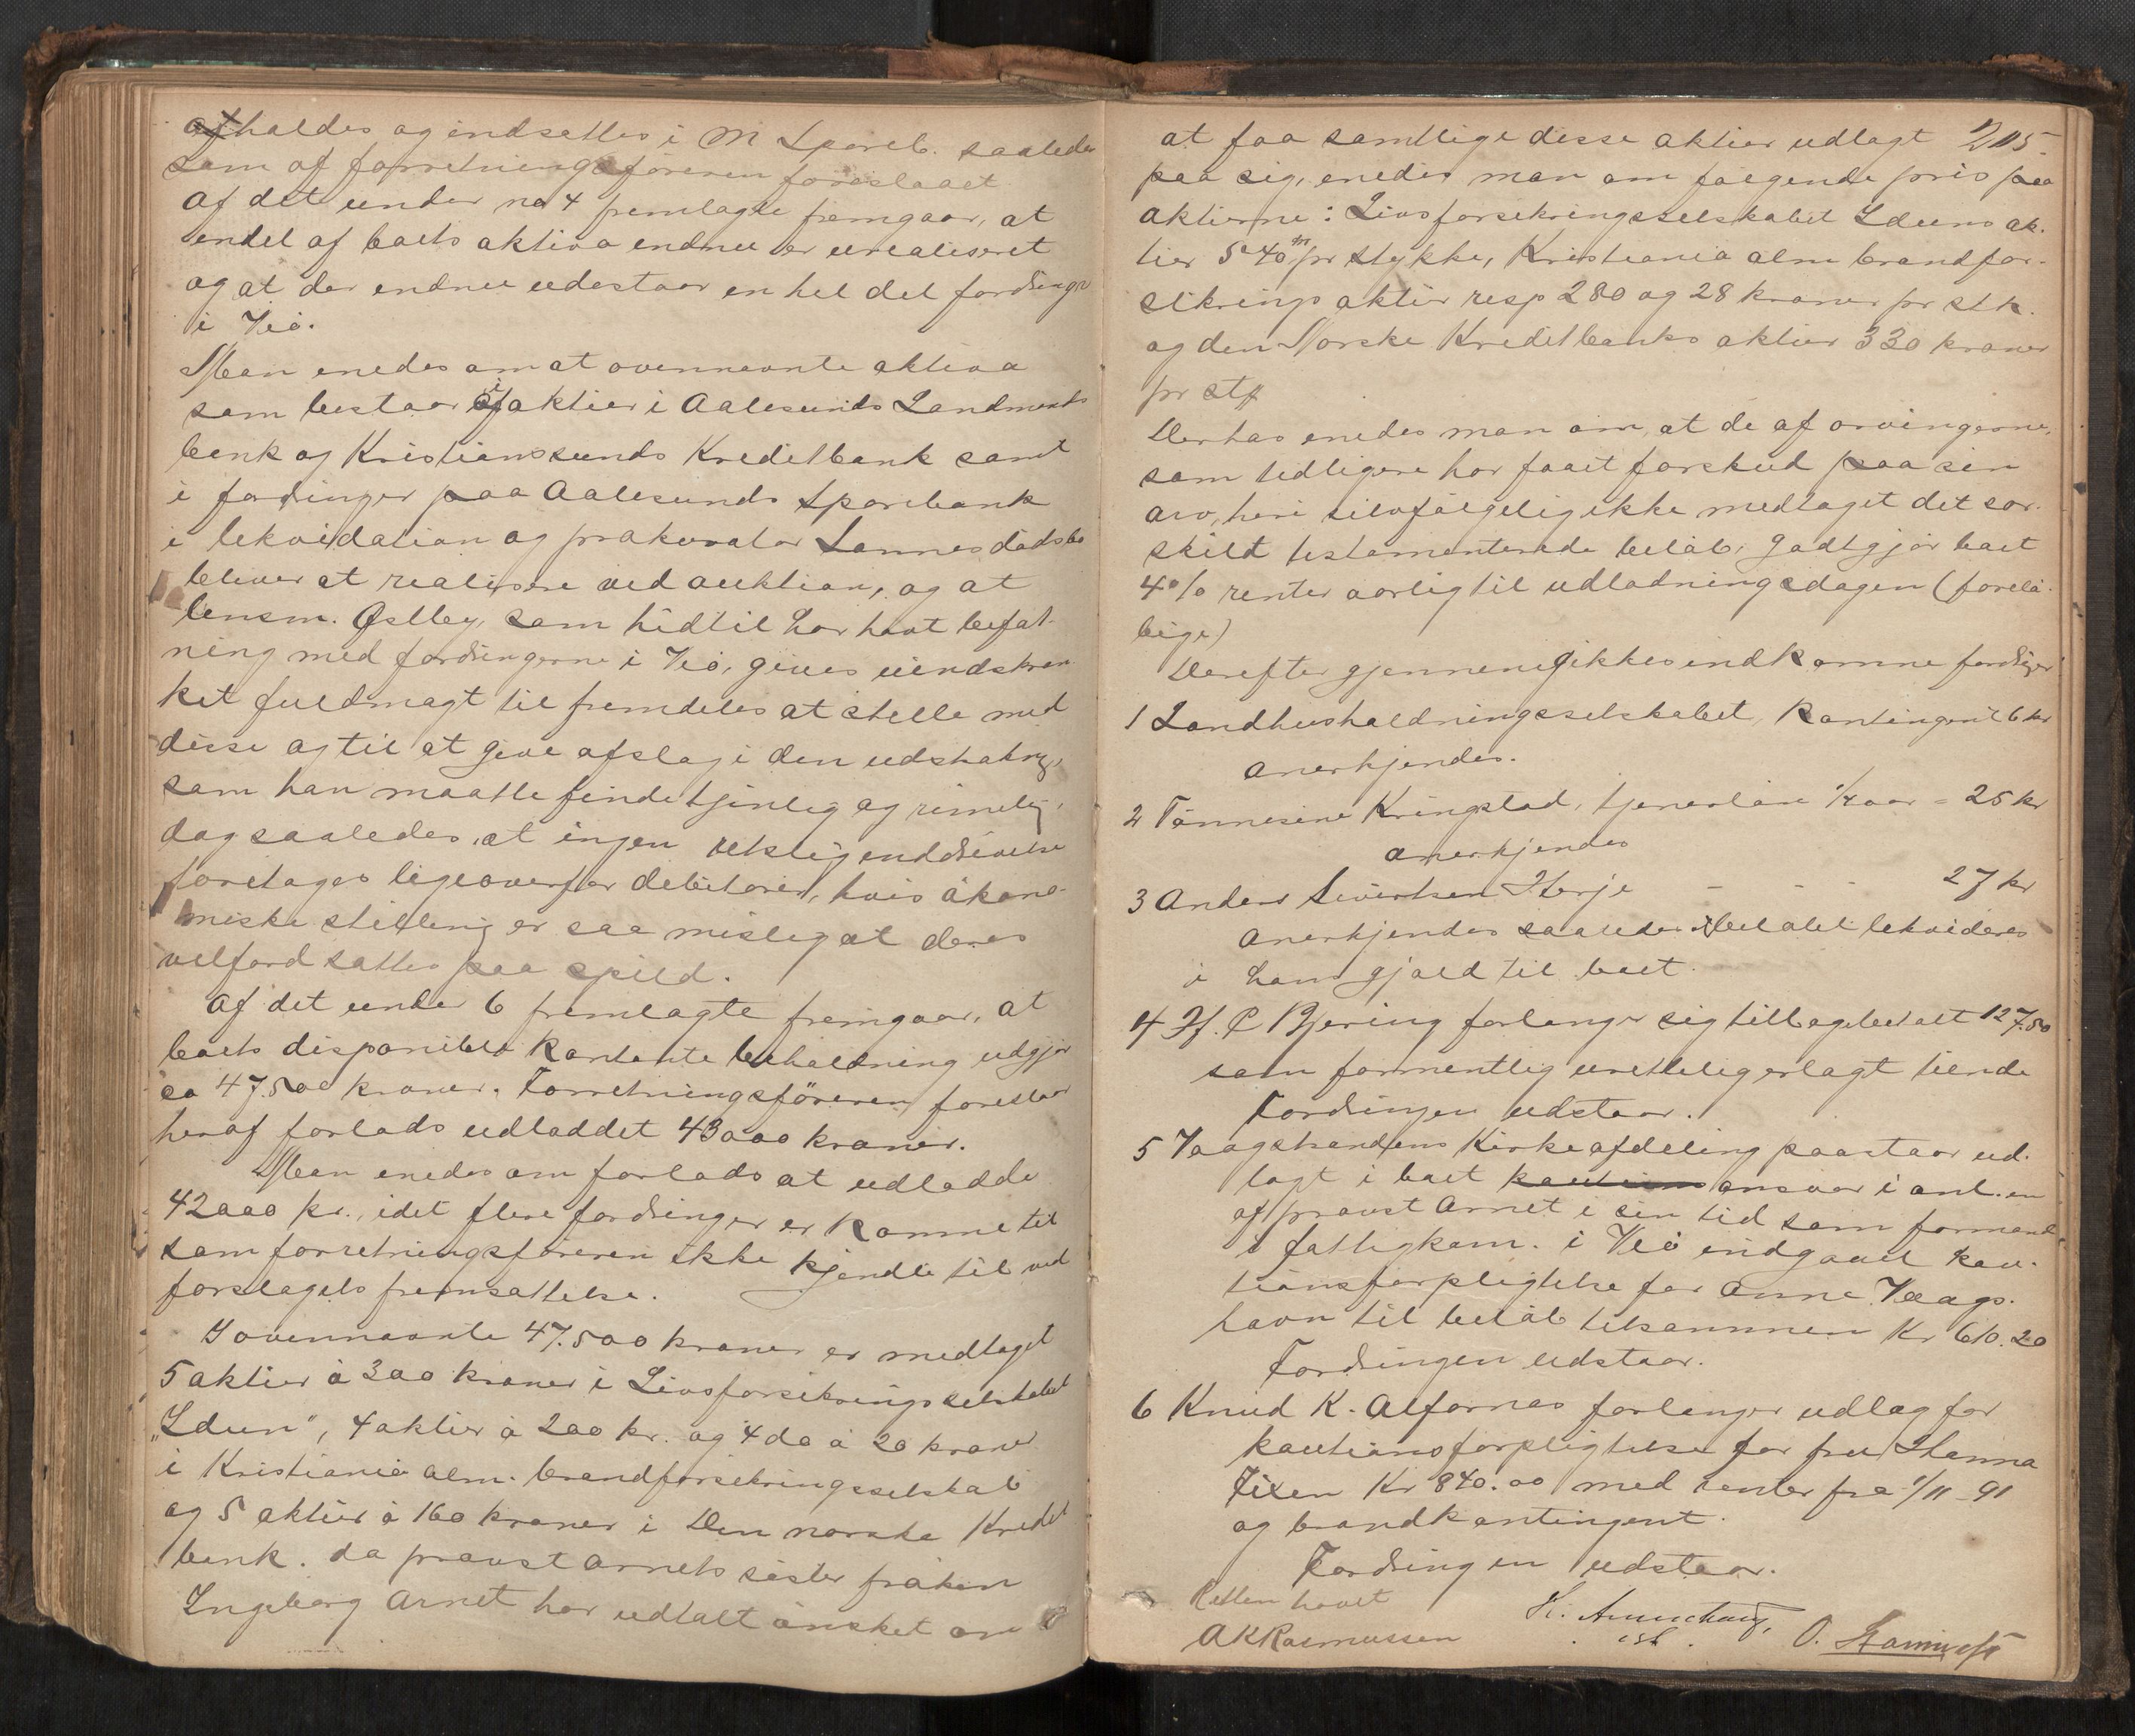 afholdes og indsættes i M Spareb. saaledes
som af forretningsføreren foreslaaet
Af det under no 4 fremlagte fremgaar, at
endel af boets aktiva endnu er urealiseret
og at der endnu udestaar en hel del fordringer
i Veø.
Man enedes om at ovennævnte aktiva
som bestaar i aktier i Aalesunds Landmands
bank og Kristianssunds Kreditbank samt
i fordringer paa Aalesunds Sparebank
i likvidation og prokurator Lannes dødsbo
bliver at realisere ved auktion, og at
lensm. Østby, som hidtil har havt befat-
ning med fordringerne i Veø, gives uindskræn
ket fuldmagt til fremdeles at stelle med
disse og til at give afslag i den udstrækng,
som han maatte finde tjenlig og rimelig,
dog saaledes, at ingen retslig inddrivelse
foretages ligeoverfor debitorer, hvis økono-
miske stilling er saa mislig at deres
velfærd sattes paa spild.
Af det under 6 fremlagte fremgaar, at
boets disponible kontante beholdning udgjør
ca 47.500 kroner. Forretningsføreren foreslaar
heraf forlods udloddet 43000 kroner.
Man enedes om forlods at udlodde
42000 kr., idet flere fordringer er komne til
som forretningsføreren ikke kjendte til ved
forslagets fremsættelse.
I ovennævnte 47.500 kroner er medtaget
5 aktier à 300 kroner i Livsforsikringsselskabet
"Idun", 4 aktier à 200 kr. og 4 do à 20 kroner
i Kristiania alm. brandforsikringsselskab
og 5 aktier à 160 kroner i Den norske Kredit
bank. da provst Arnets søster frøken
Ingeborg Arnet har udtalt ønsket om
at faa samtlige disse aktier udlagt 205.
paa sig, enedes man om følgende pris paa
aktierne: Livsforsikringsselskabet Iduns ak-
tier 540 kr pr stykke, Kristiania alm brandfor-
sikrings aktier resp 280 og 28 kroner pr stk.
og den Norske Kreditbanks aktier 330 kroner
pr stk
Derhos enedes man om, at de af arvingerne,
som tidligere har faaet forskud paa sin
arv, heri selvfølgelig ikke medtaget det sær-
skilt testamenterede beløb, godtgjør boet
4 % renter aarlig til udlodningsdagen (forelø-
bige)
Derefter gjennemgikkes indkomne fordringer
1 Landhusholdningsselskabet, Kontingent 6 kr
anerkjendes.
2 Tønnesine Kringstad, tjenerløn 1/2 aar = 25 kr
anerkjendes
3 Anders Sivertsen Herje - - - 27 kr
Anerkjendes saaledes at beløbet likvideres
i hans gjæld til boet.
4 H. P Bjering forlanger sig tilbagebetalt 127.50
som formentlig urettelig erlagt tiende
Fordringen udstaar.
5 Vaagstrandens Kirkeafdeling paastaar ud-
lagt i boet ansvar i anl. en
af provst Arnet i sin tid som formand
i fattigkom. i Veø indgaaet kau-
tionsforpligtelse for Anne Vaags-
havn til beløb tilsammen Kr 610.20
Fordringen udstaar.
6 Knud K. Alfarnes forlanger udlæg for
kautionsforpligtelse for fru Hanna
Fixen Kr 840.00 med renter fra 1/11 - 91
og brandkontingent.
Fordringen udstaar.
Retten hævet
AKRasmussen